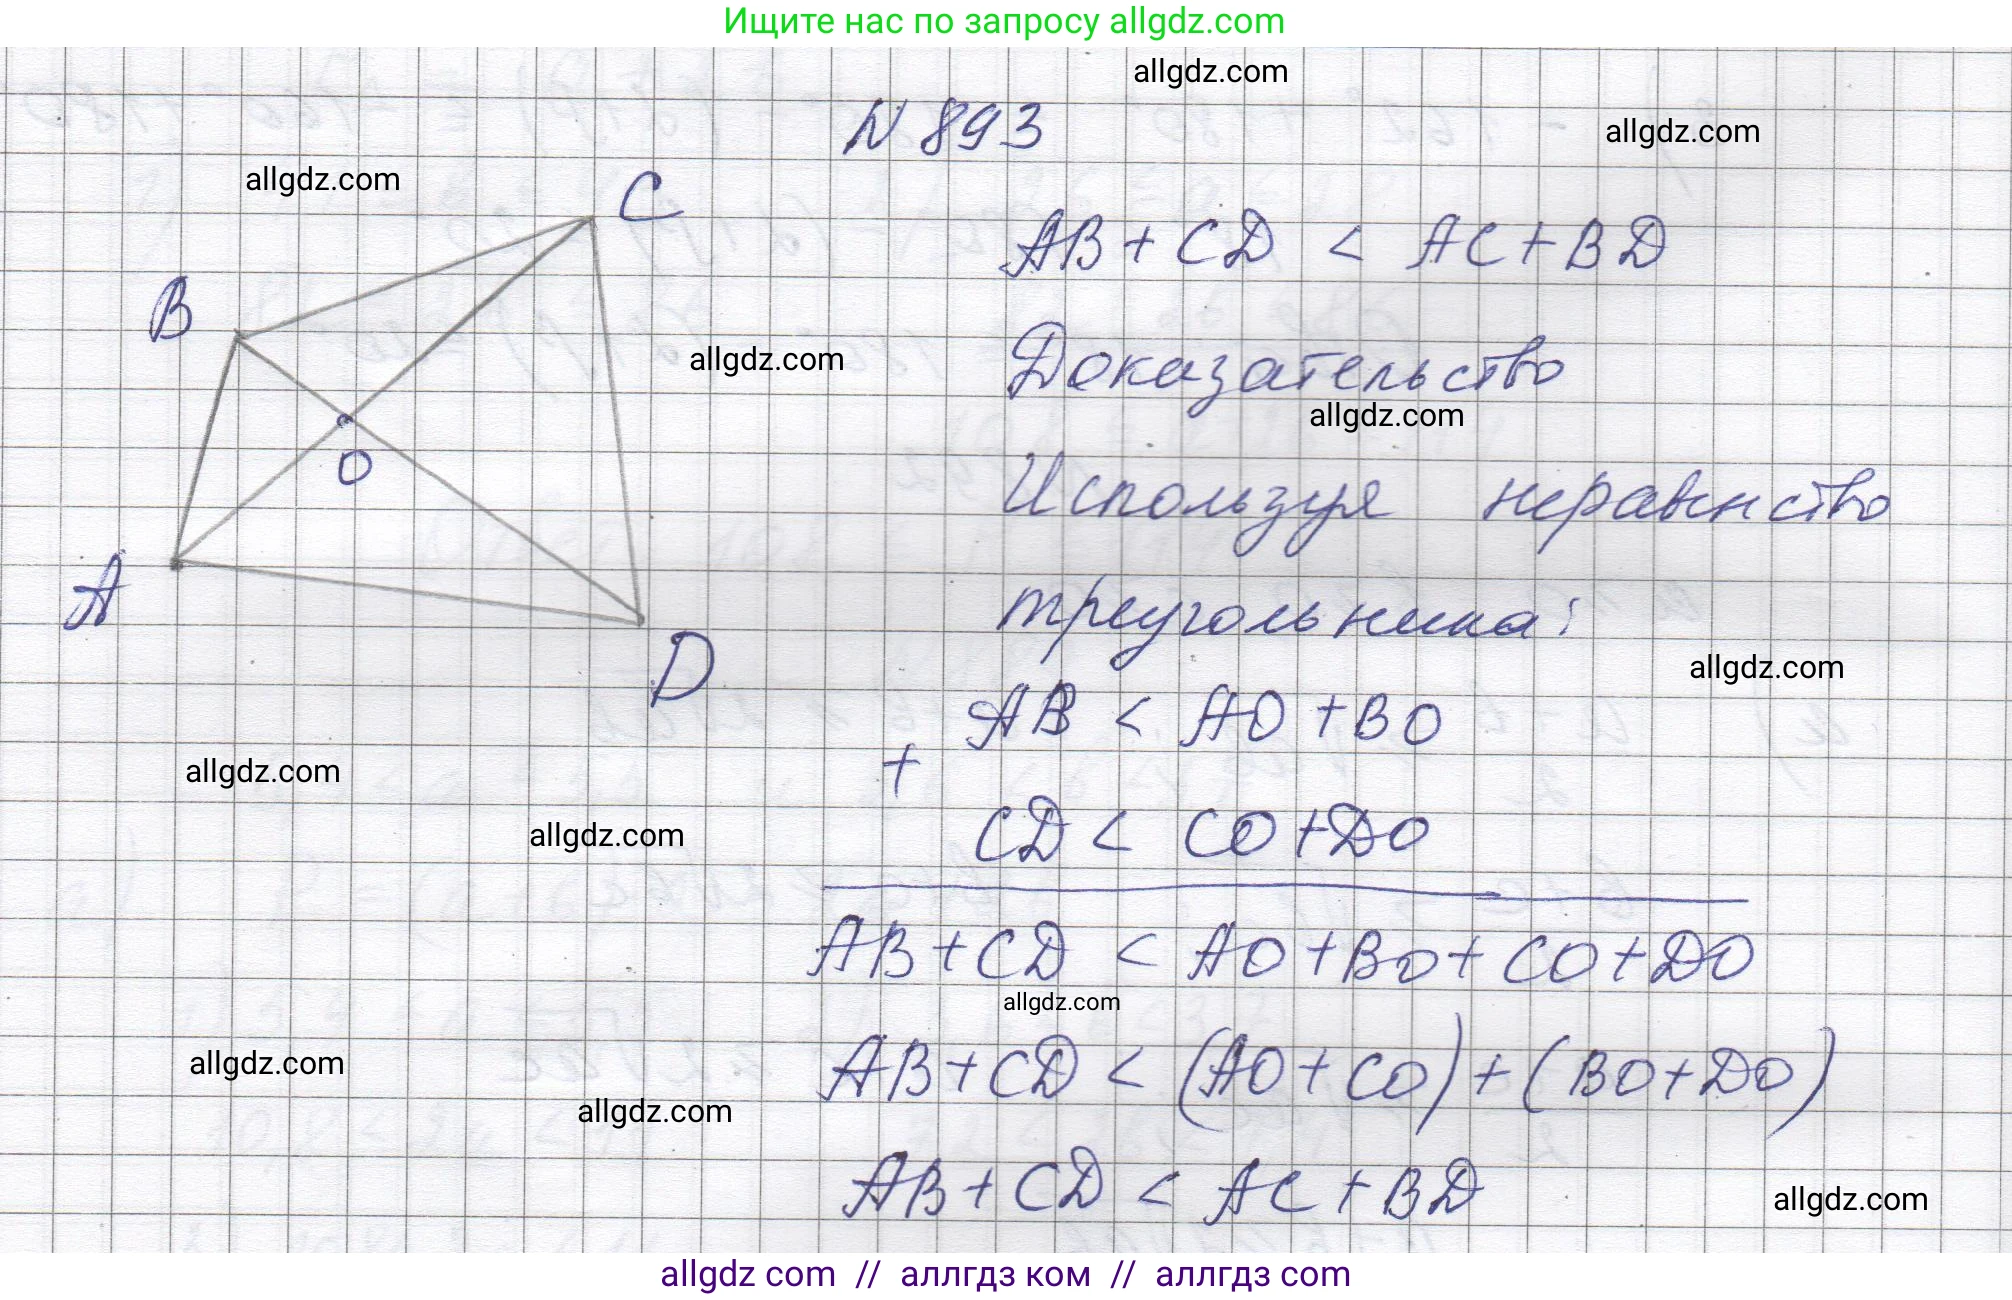 Ищите нас по запросу allgdz.com
allgdz.com
N 893
allgdz.com
allgdz.com
C
AB + CD < AC + BD
B
Доказательство
allgdz.com
allgdz.com
O
Используя неравенство
A
треугольника:
D
allgdz.com
AB < AO + BO
+
allgdz.com
CD < CO + DO
allgdz.com
AB + CD < AO + BO + CO + DO
allgdz.com
AB + CD < (AO + CO) + (BO + DO)
allgdz.com
allgdz.com
AB + CD < AC + BD
allgdz.com
allgdz com // аллгдз ком // аллгдз com